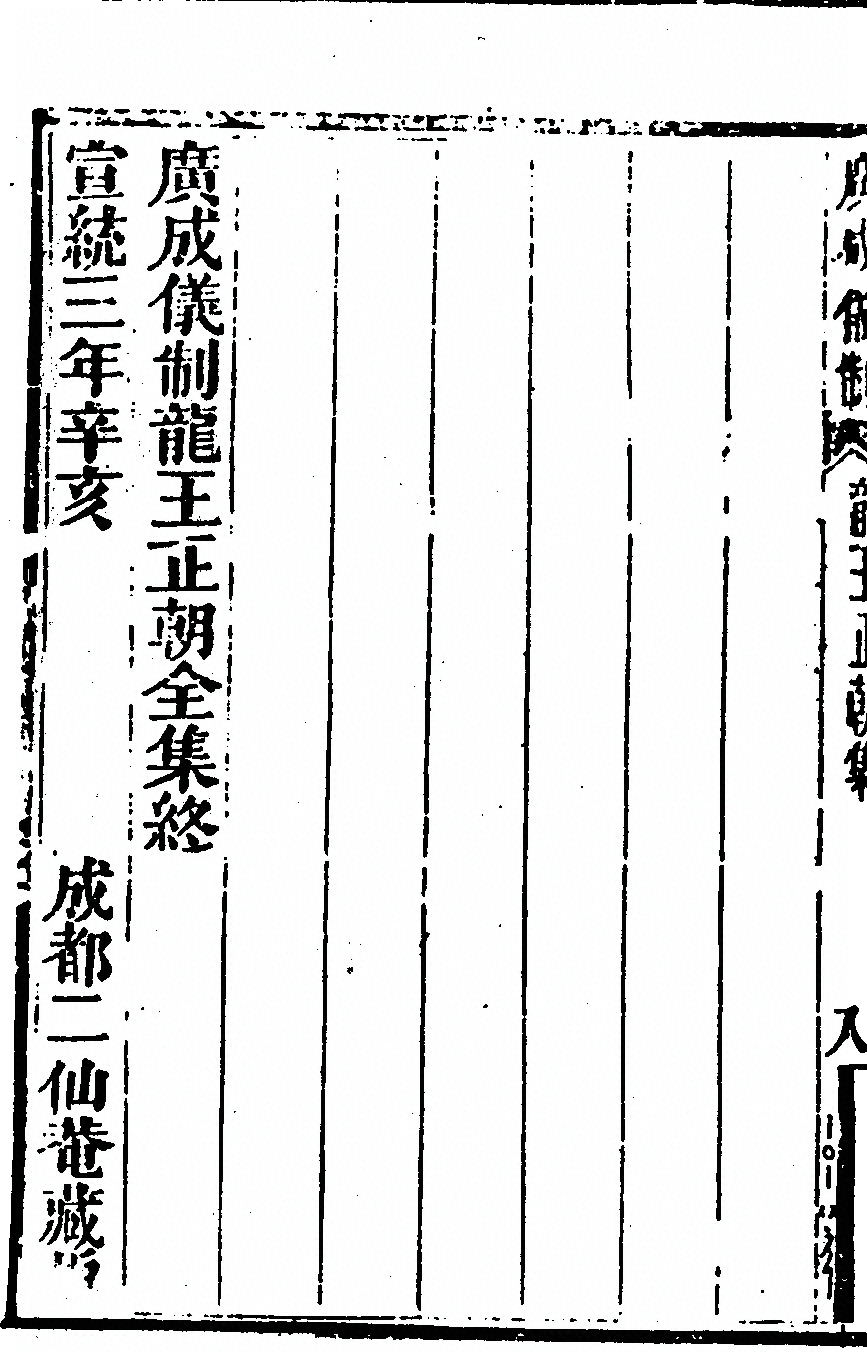 廣成儀制
龍王正朝集
八
廣成儀制龍王正朝全集終
宣統三年辛亥
成都二仙菴藏